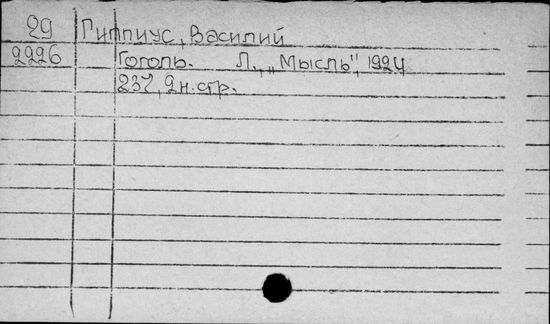 29 Гиппиус, Василий
2226 Гоголь. Л., „Мысль", 1924
237, 2 н. стр.